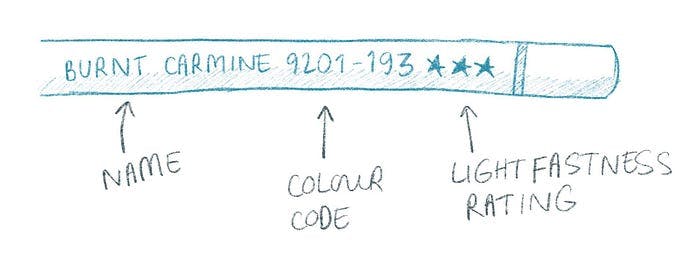 BURNT CARMINE 9201-193 ★★★
NAME
COLOUR
CODE
LIGHTFASTNESS
RATING